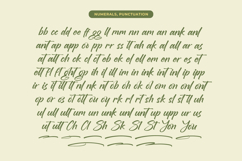 NUMERALS, PUNCTUATION
bb cc dd ee ff gg ll mm nn am an ank and
ant ap app cc pp rr ss tt ah ak al all ar as
at att ch ck cl ct eb ek el ell em en er es et
ett fl ft ght gp th if ill im in ink int inl ip ipp
ir is it ill tt nl nk nt ob ck ol om on onl ont
op or os ot ott ou oy rk rl rt sh sk sl st tl uh
ul ull ult um un unk unl unt up upp ur us
ut utt Ch Cl Sh Sk Sl St Yen You